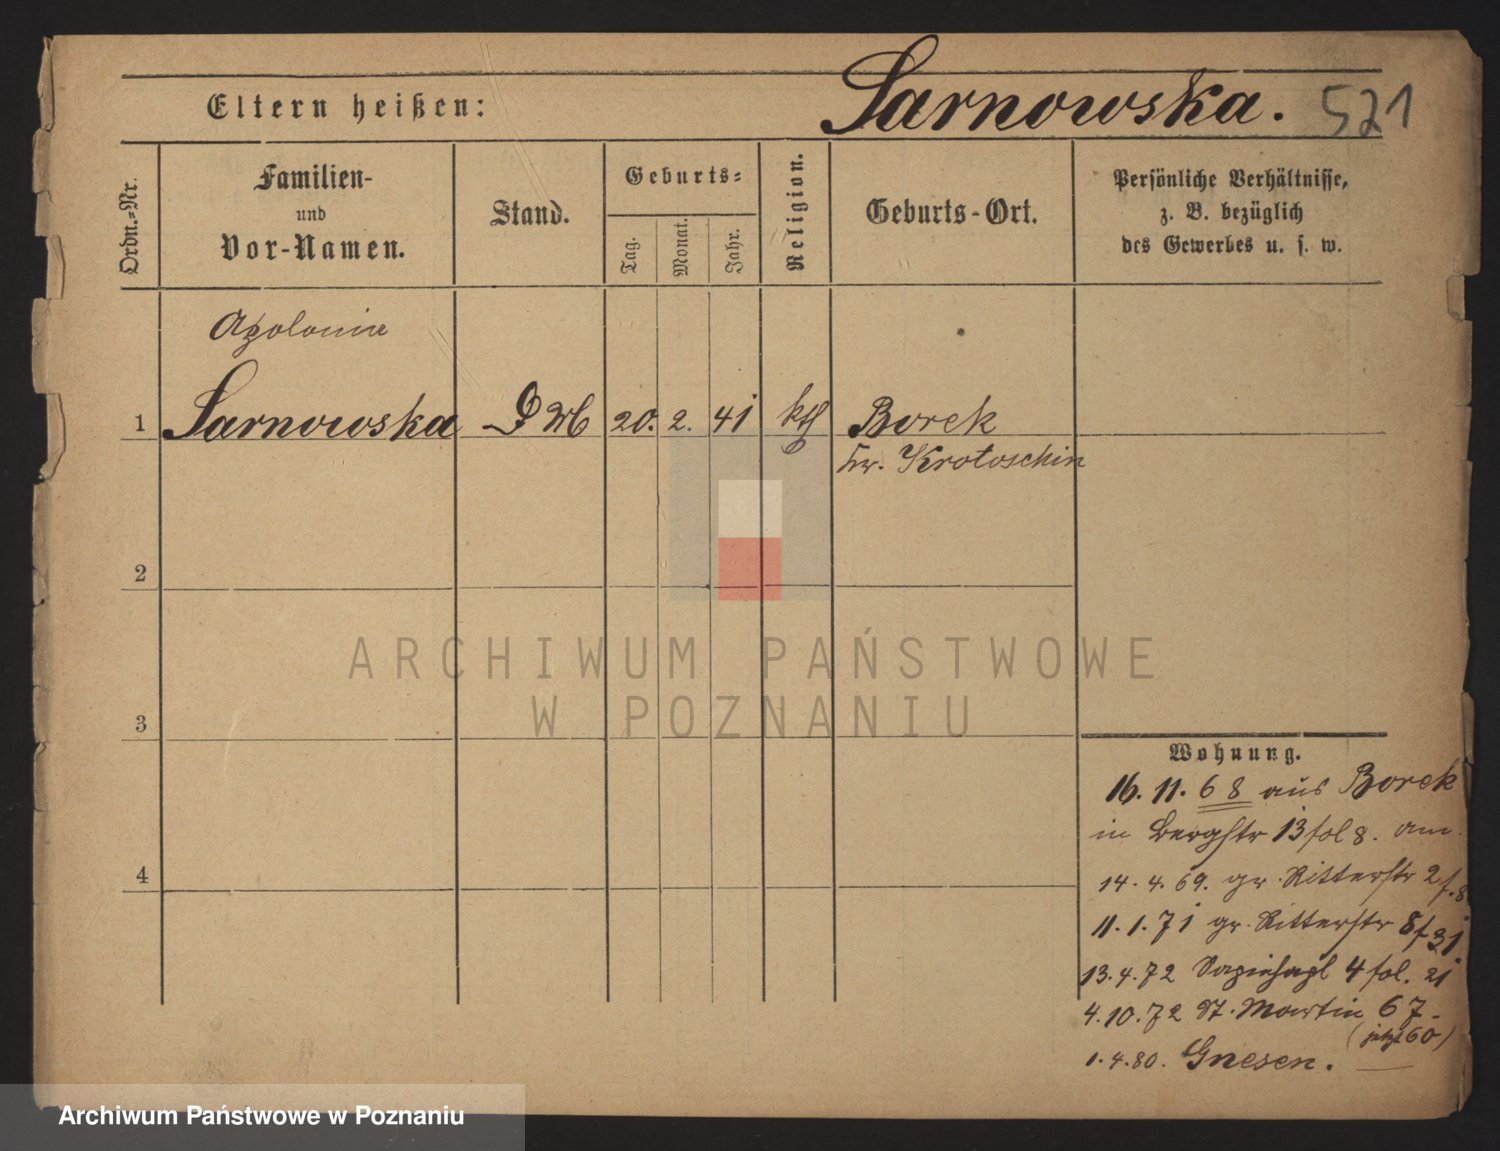 Sarnowska. 521
Eltern heißen:
Ordn.-Nr.
Familien-
und
Vor-Namen.
Stand.
Geburts-
Tag.
Monat.
Jahr.
Religion.
Geburts-Ort.
Persönliche Verhältnisse,
z. B. bezüglich
des Gewerbes u. s. w.
Apolonia
1 Sarnowska 20. 2. 41 kth Borek
Kr. Krotoschin
2
3
4
Wohnung.
16. 11. 68 aus Borek
in Bergstr 13 fol 8. am
14. 4. 69. gr. Ritterstr 2 f. 8
11. 1. 71 gr. Ritterstr 8 f 31
13. 4. 72 Sapiehapl 4 fol. 21
4. 10. 72 St. Martin 67.
(jetzt 60)
1. 4. 80. Gnesen.
ARCHIWUM PAŃSTWOWE
W POZNANIU
Archiwum Państwowe w Poznaniu